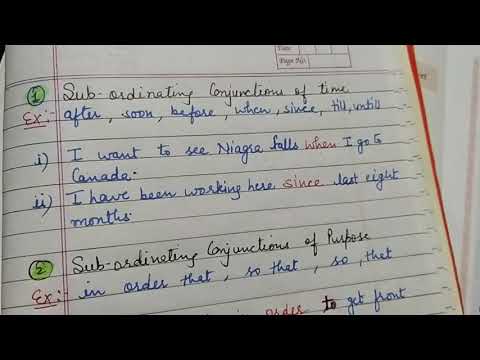 Date
Page No.
① Sub-ordinating Conjunctions of time
Ex:- after, soon, before, when, since, till, until
i) I want to see Niagra falls when I go to
Canada.
ii) I have been working here since last eight
months.
② Sub-ordinating Conjunctions of Purpose
Ex:- in order that, so that, so, that
order to get front